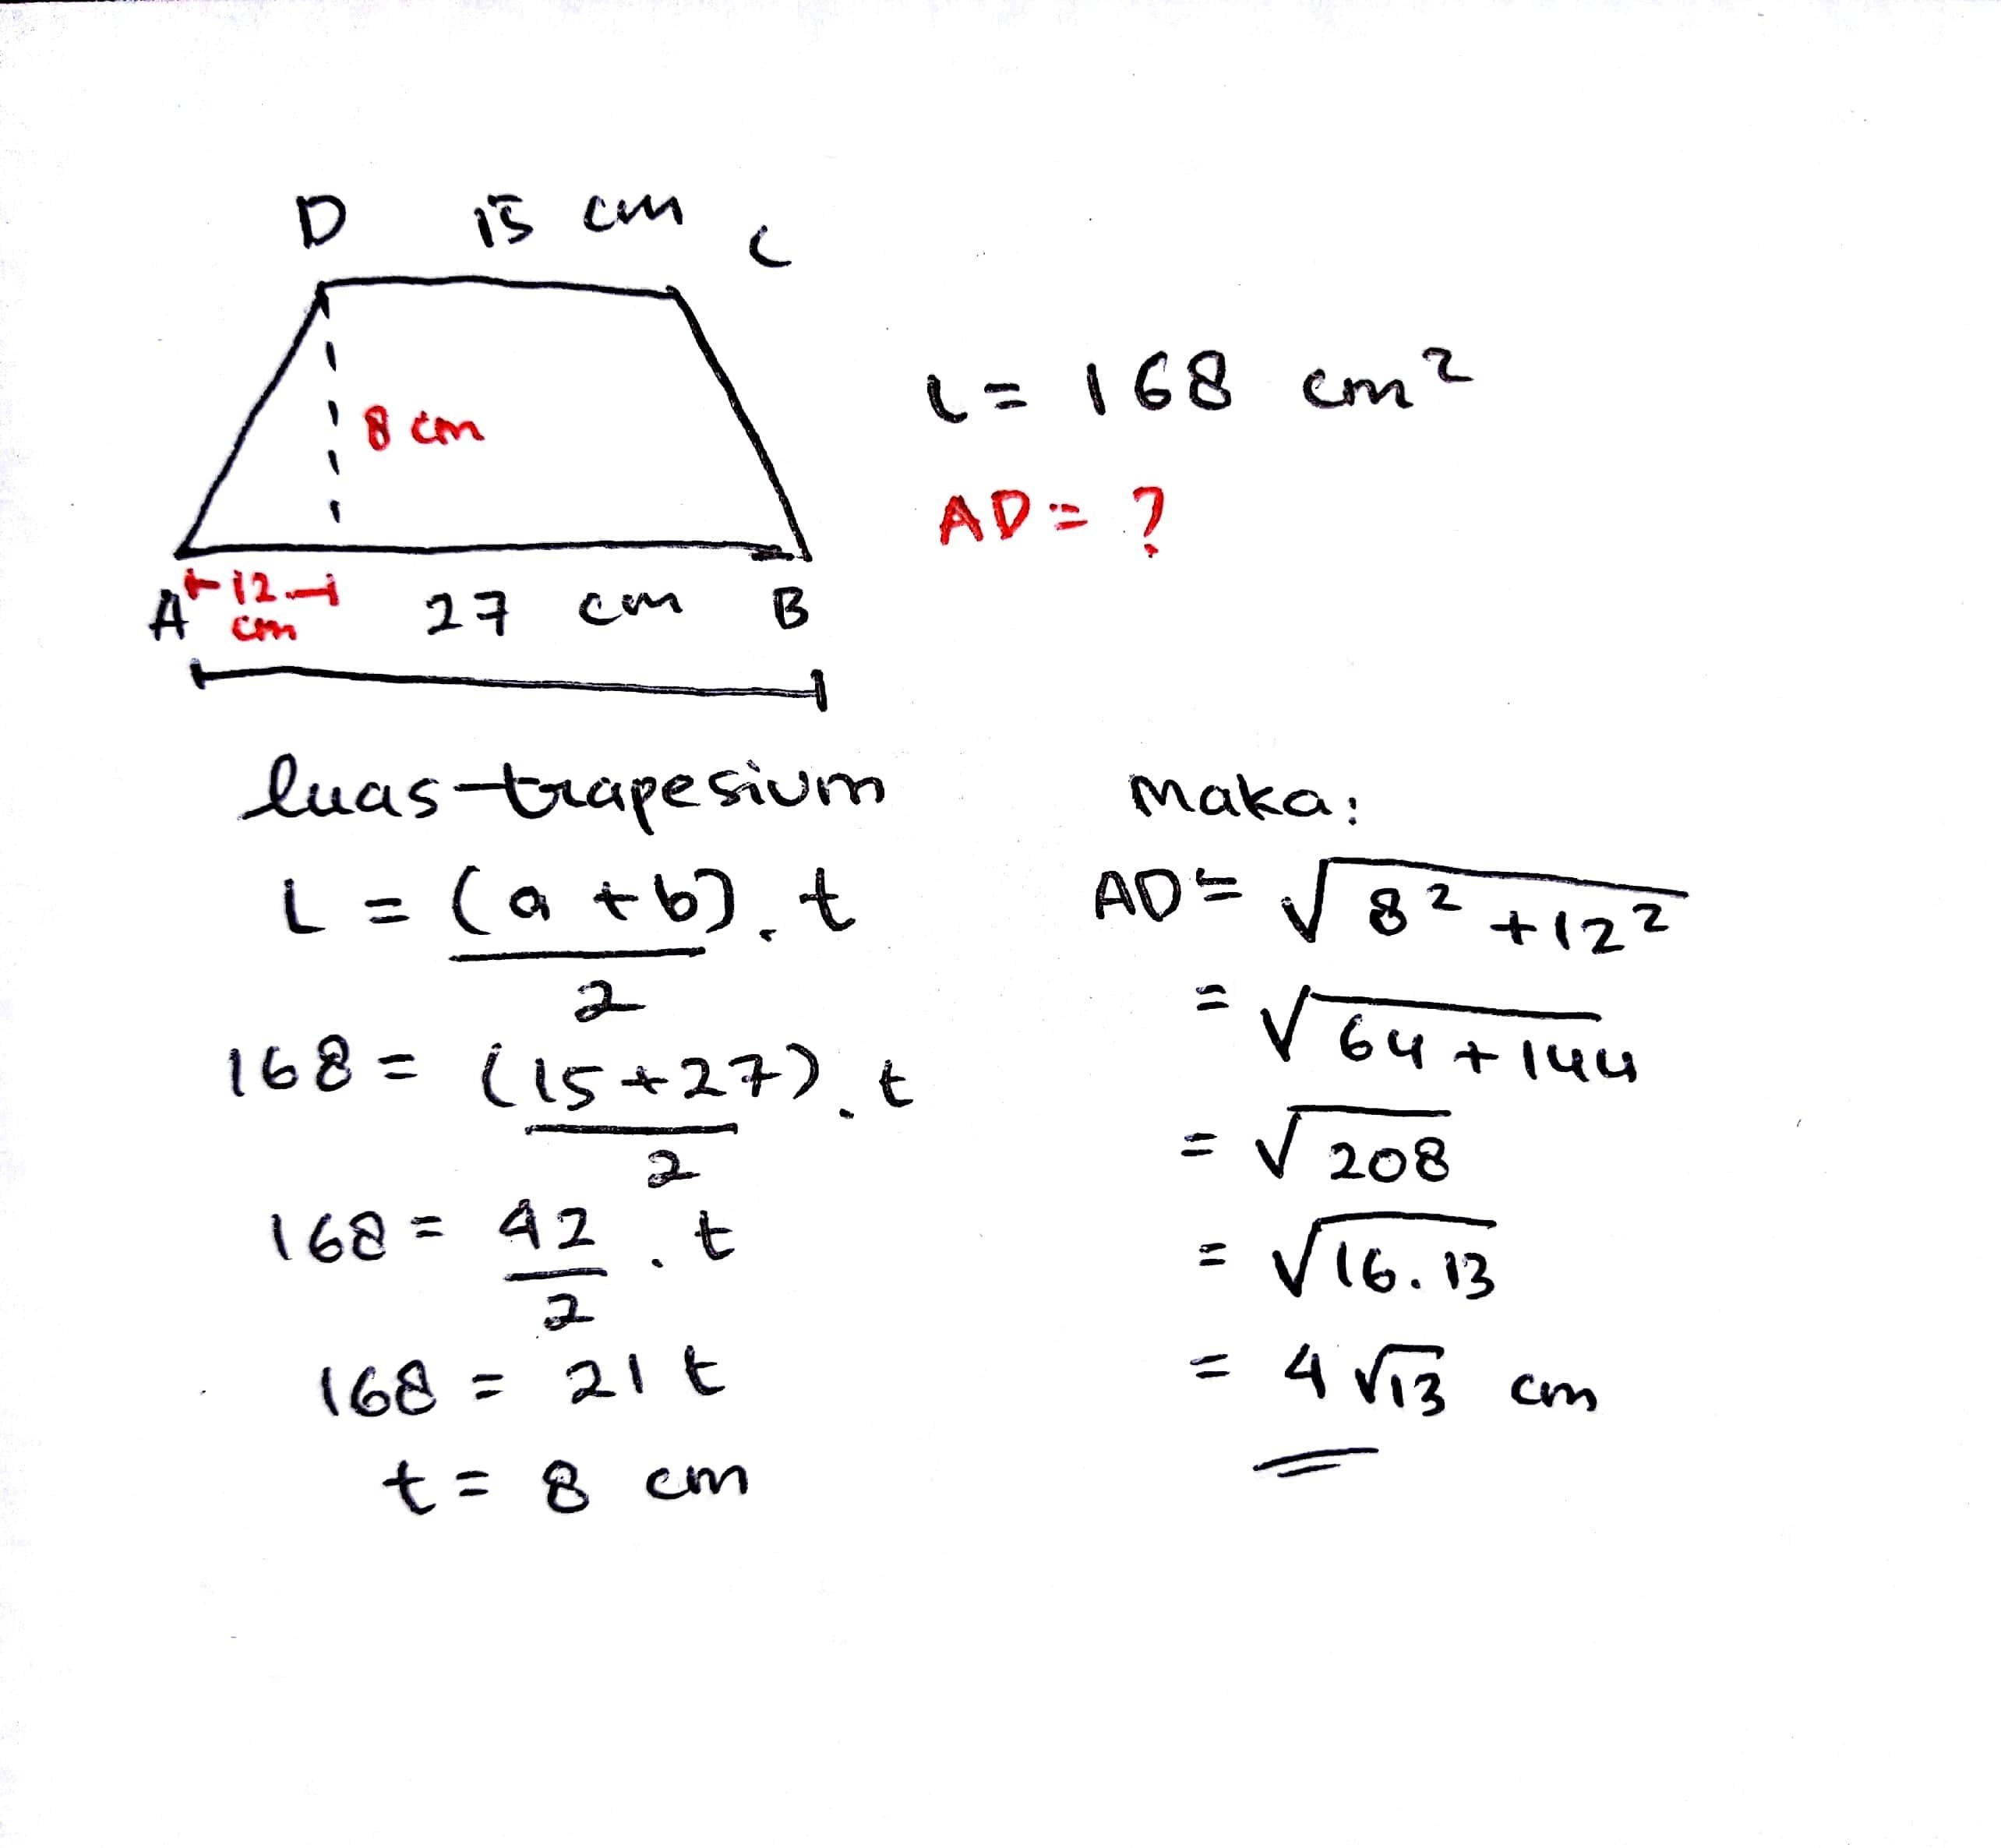 D 15 cm C
8 cm
L = 168 cm²
AD = ?
A 12 cm 27 cm B
luas trapesium
L = (a + b) . t
2
168 = (15 + 27) . t
2
168 = 42 . t
2
168 = 21 t
t = 8 cm
Maka:
AD = √8² + 12²
= √64 + 144
= √208
= √16 . 13
= 4 √13 cm